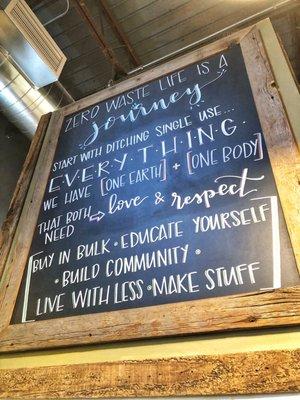 ZERO WASTE LIFE IS A
journey
START WITH DITCHING SINGLE USE...
E·V·E·R·Y·T·H·I·N·G·
WE HAVE [ONE EARTH] + [ONE BODY]
THAT BOTH NEED → love & respect
BUY IN BULK · EDUCATE YOURSELF
· BUILD COMMUNITY ·
LIVE WITH LESS · MAKE STUFF